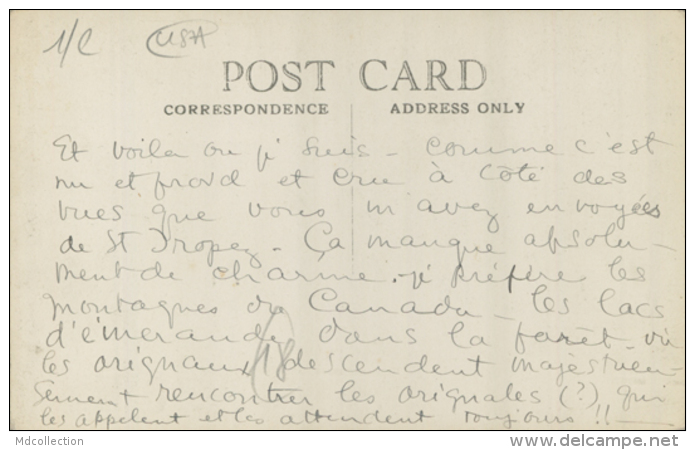 1/2 USA
POST CARD
CORRESPONDENCE ADDRESS ONLY
Et voila ou je suis - comme c'est
nu et froid et cru à côté des
vues que vous m'avez envoyées
de St Tropez - Ça manque absolu-
ment de charme - je préfère les
montagnes du Canada - les lacs
d'émeraude dans la forêt - où
les orignaux descendent majestueu-
sement rencontrer les orignales (?) qui
les appellent et les attendent toujours !!
Mdcollection
delcampe.net